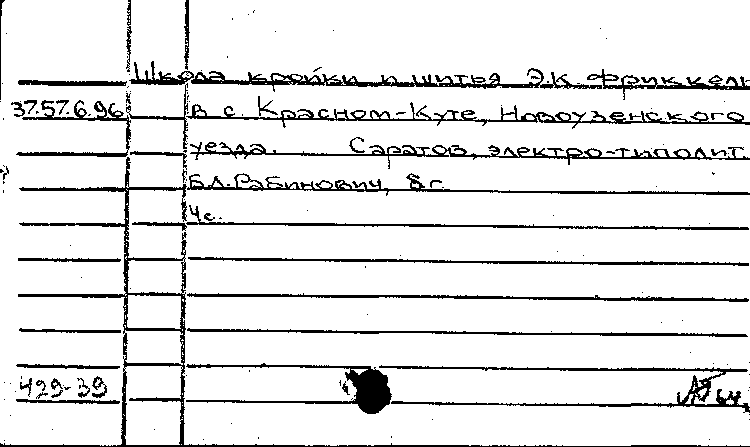 Школа кройки и шитья Э.К. Фриккель
37.57.6.96 в с. Красном-Куте, Новоузенского
уезда. Саратов, электро-типолит.
Б.Л. Рабинович, б г.
4 с.
429-39 64